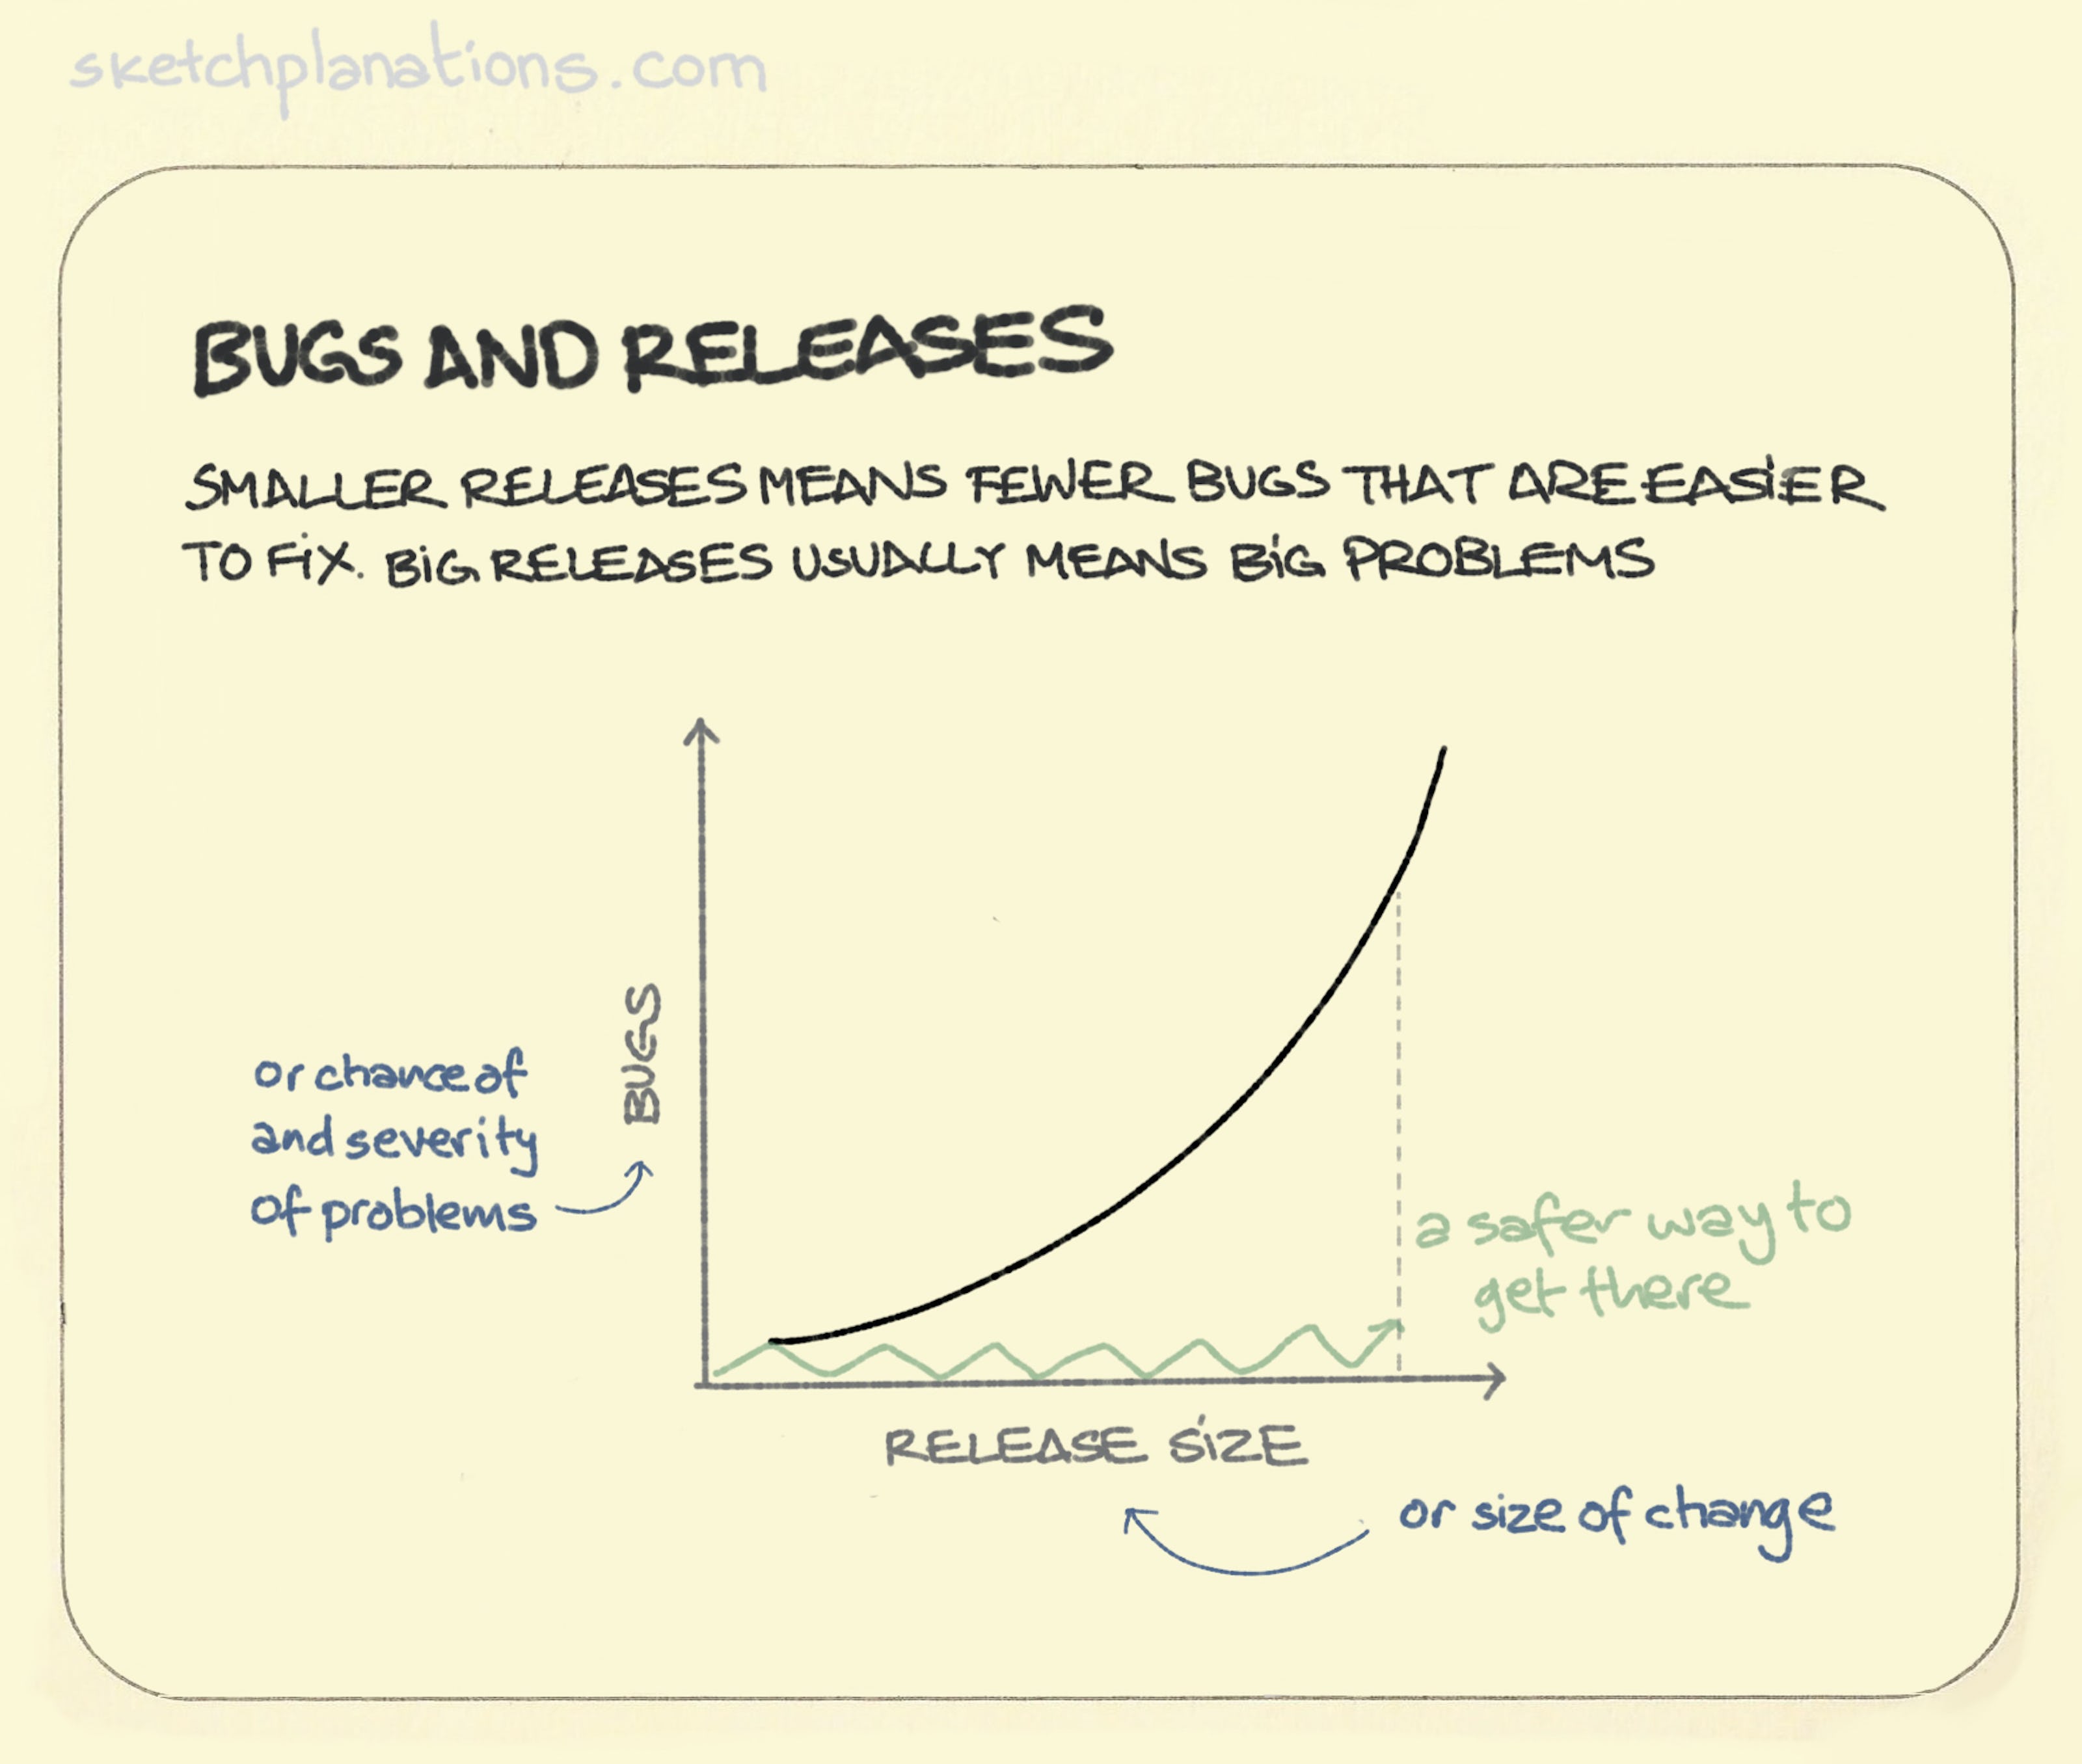 sketchplanations.com
BUGS AND RELEASES
SMALLER RELEASES MEANS FEWER BUGS THAT ARE EASIER
TO FIX. BIG RELEASES USUALLY MEANS BIG PROBLEMS
BUGS
or chance of
and severity
of problems
a safer way to
get there
RELEASE SIZE
or size of change